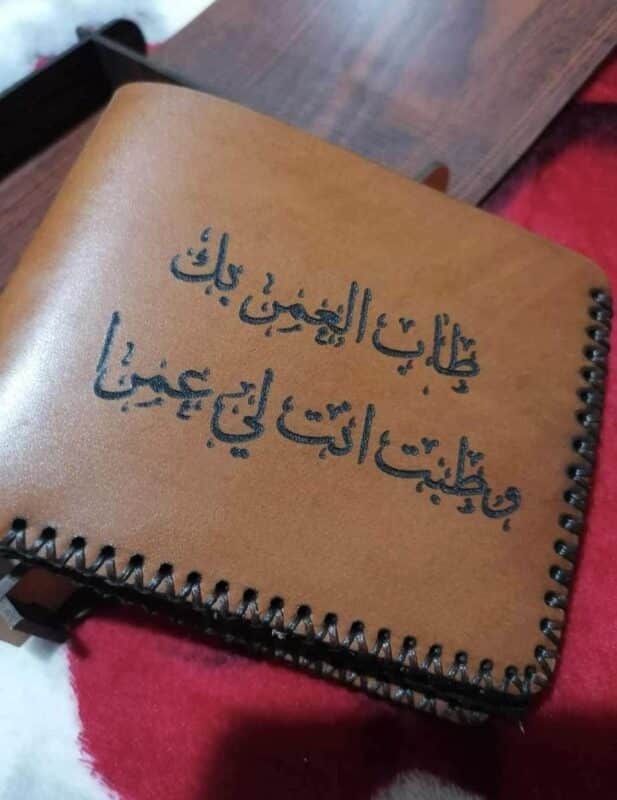 طاب العمر بك
وطبت انت لي عمرا